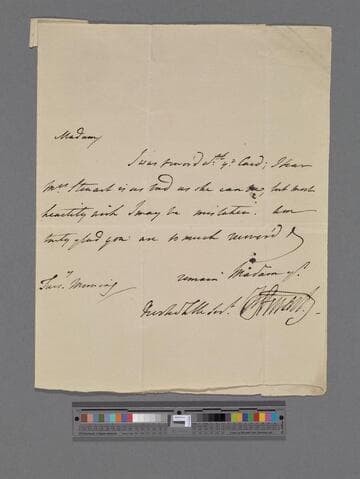 Madam
I was favord wth yr Card; I fear
Mrs Stewart is as bad as she can be, but most
heartily wish I may be mistaken. am
truly glad you are so much recoverd &
remain Madam yr
Tuesy Morning
Hble Servt.